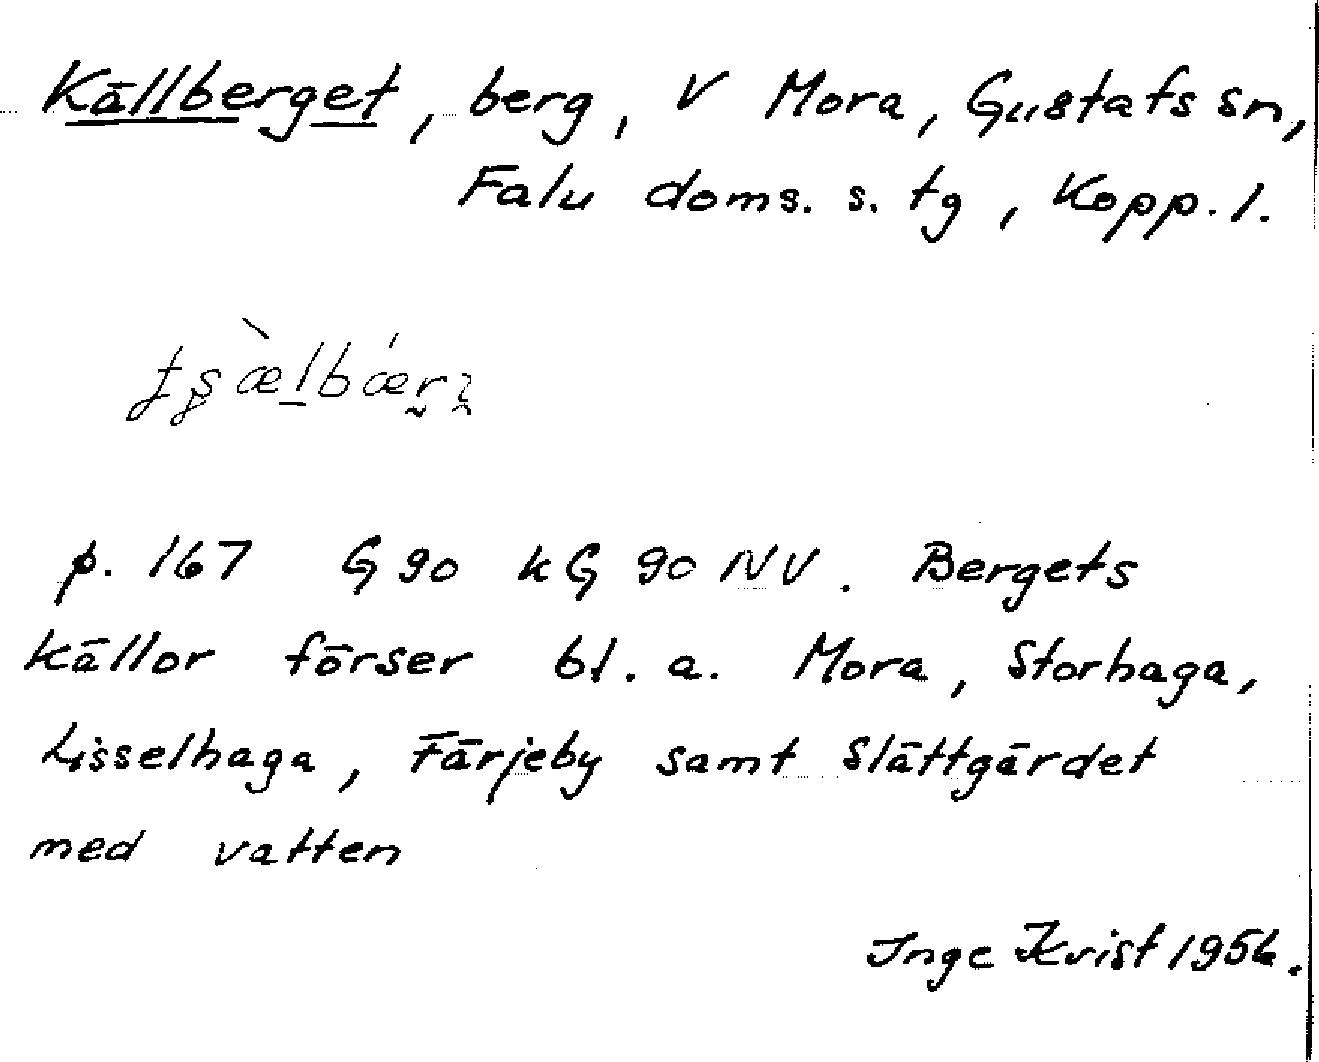 Källberget, berg, V Mora, Gustafs sn,
Falu doms. s. tg, Kopp. l.
p. 167 G 90 kG 90 NV. Bergets
källor förser bl. a. Mora, Storhaga,
Lisselhaga, Färjeby samt Slättgärdet
med vatten
Inge Kvist 1956.